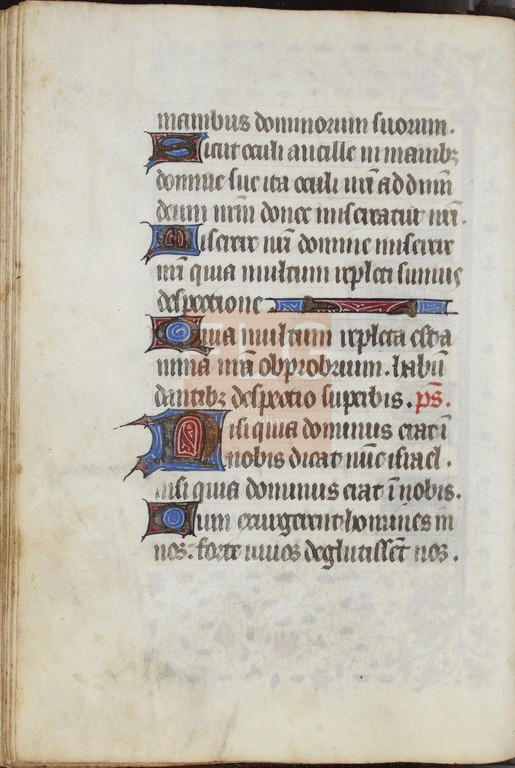 manibus dominorum suorum.
Sicut oculi ancille in manibꝫ
domine sue ita oculi nr̄i ad dn̄m
deum nr̄m donec misereatur nr̄i.
Miserere nr̄i domine miserere
nr̄i quia multum repleti sumus
despectione
Quia multum repleta est a
nima nr̄a obprobrium. habū
dantibꝫ despectio superbis. ps̄.
Nisi quia dominus erat ī
nobis dicat nūc israel.
nisi quia dominus erat ī nobis.
Cum exurgerent homines in
nos. forte uiuos deglutissēt nos.